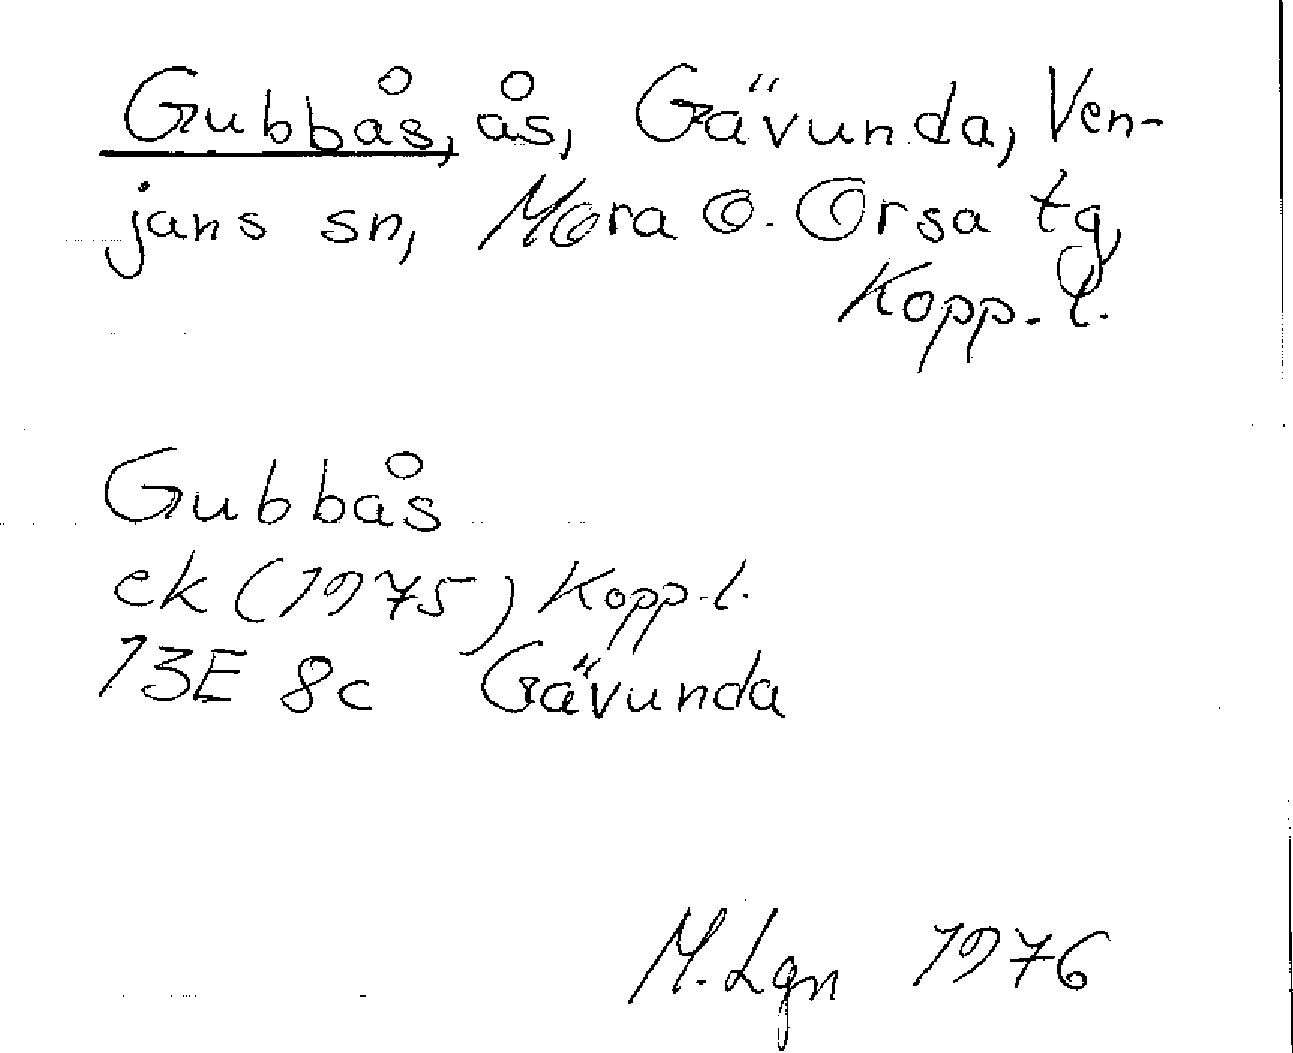 Gubbås, ås, Gävunda, Ven-
jans sn, Mora o. Orsa tg,
Kopp. l.
Gubbås
ek (1975) Kopp. l.
13E 8c Gävunda
M. Lgn 1976